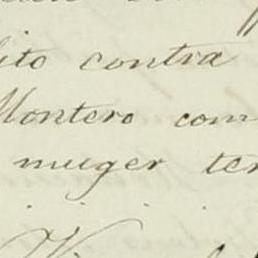 ito contra
Montero com
muger ter